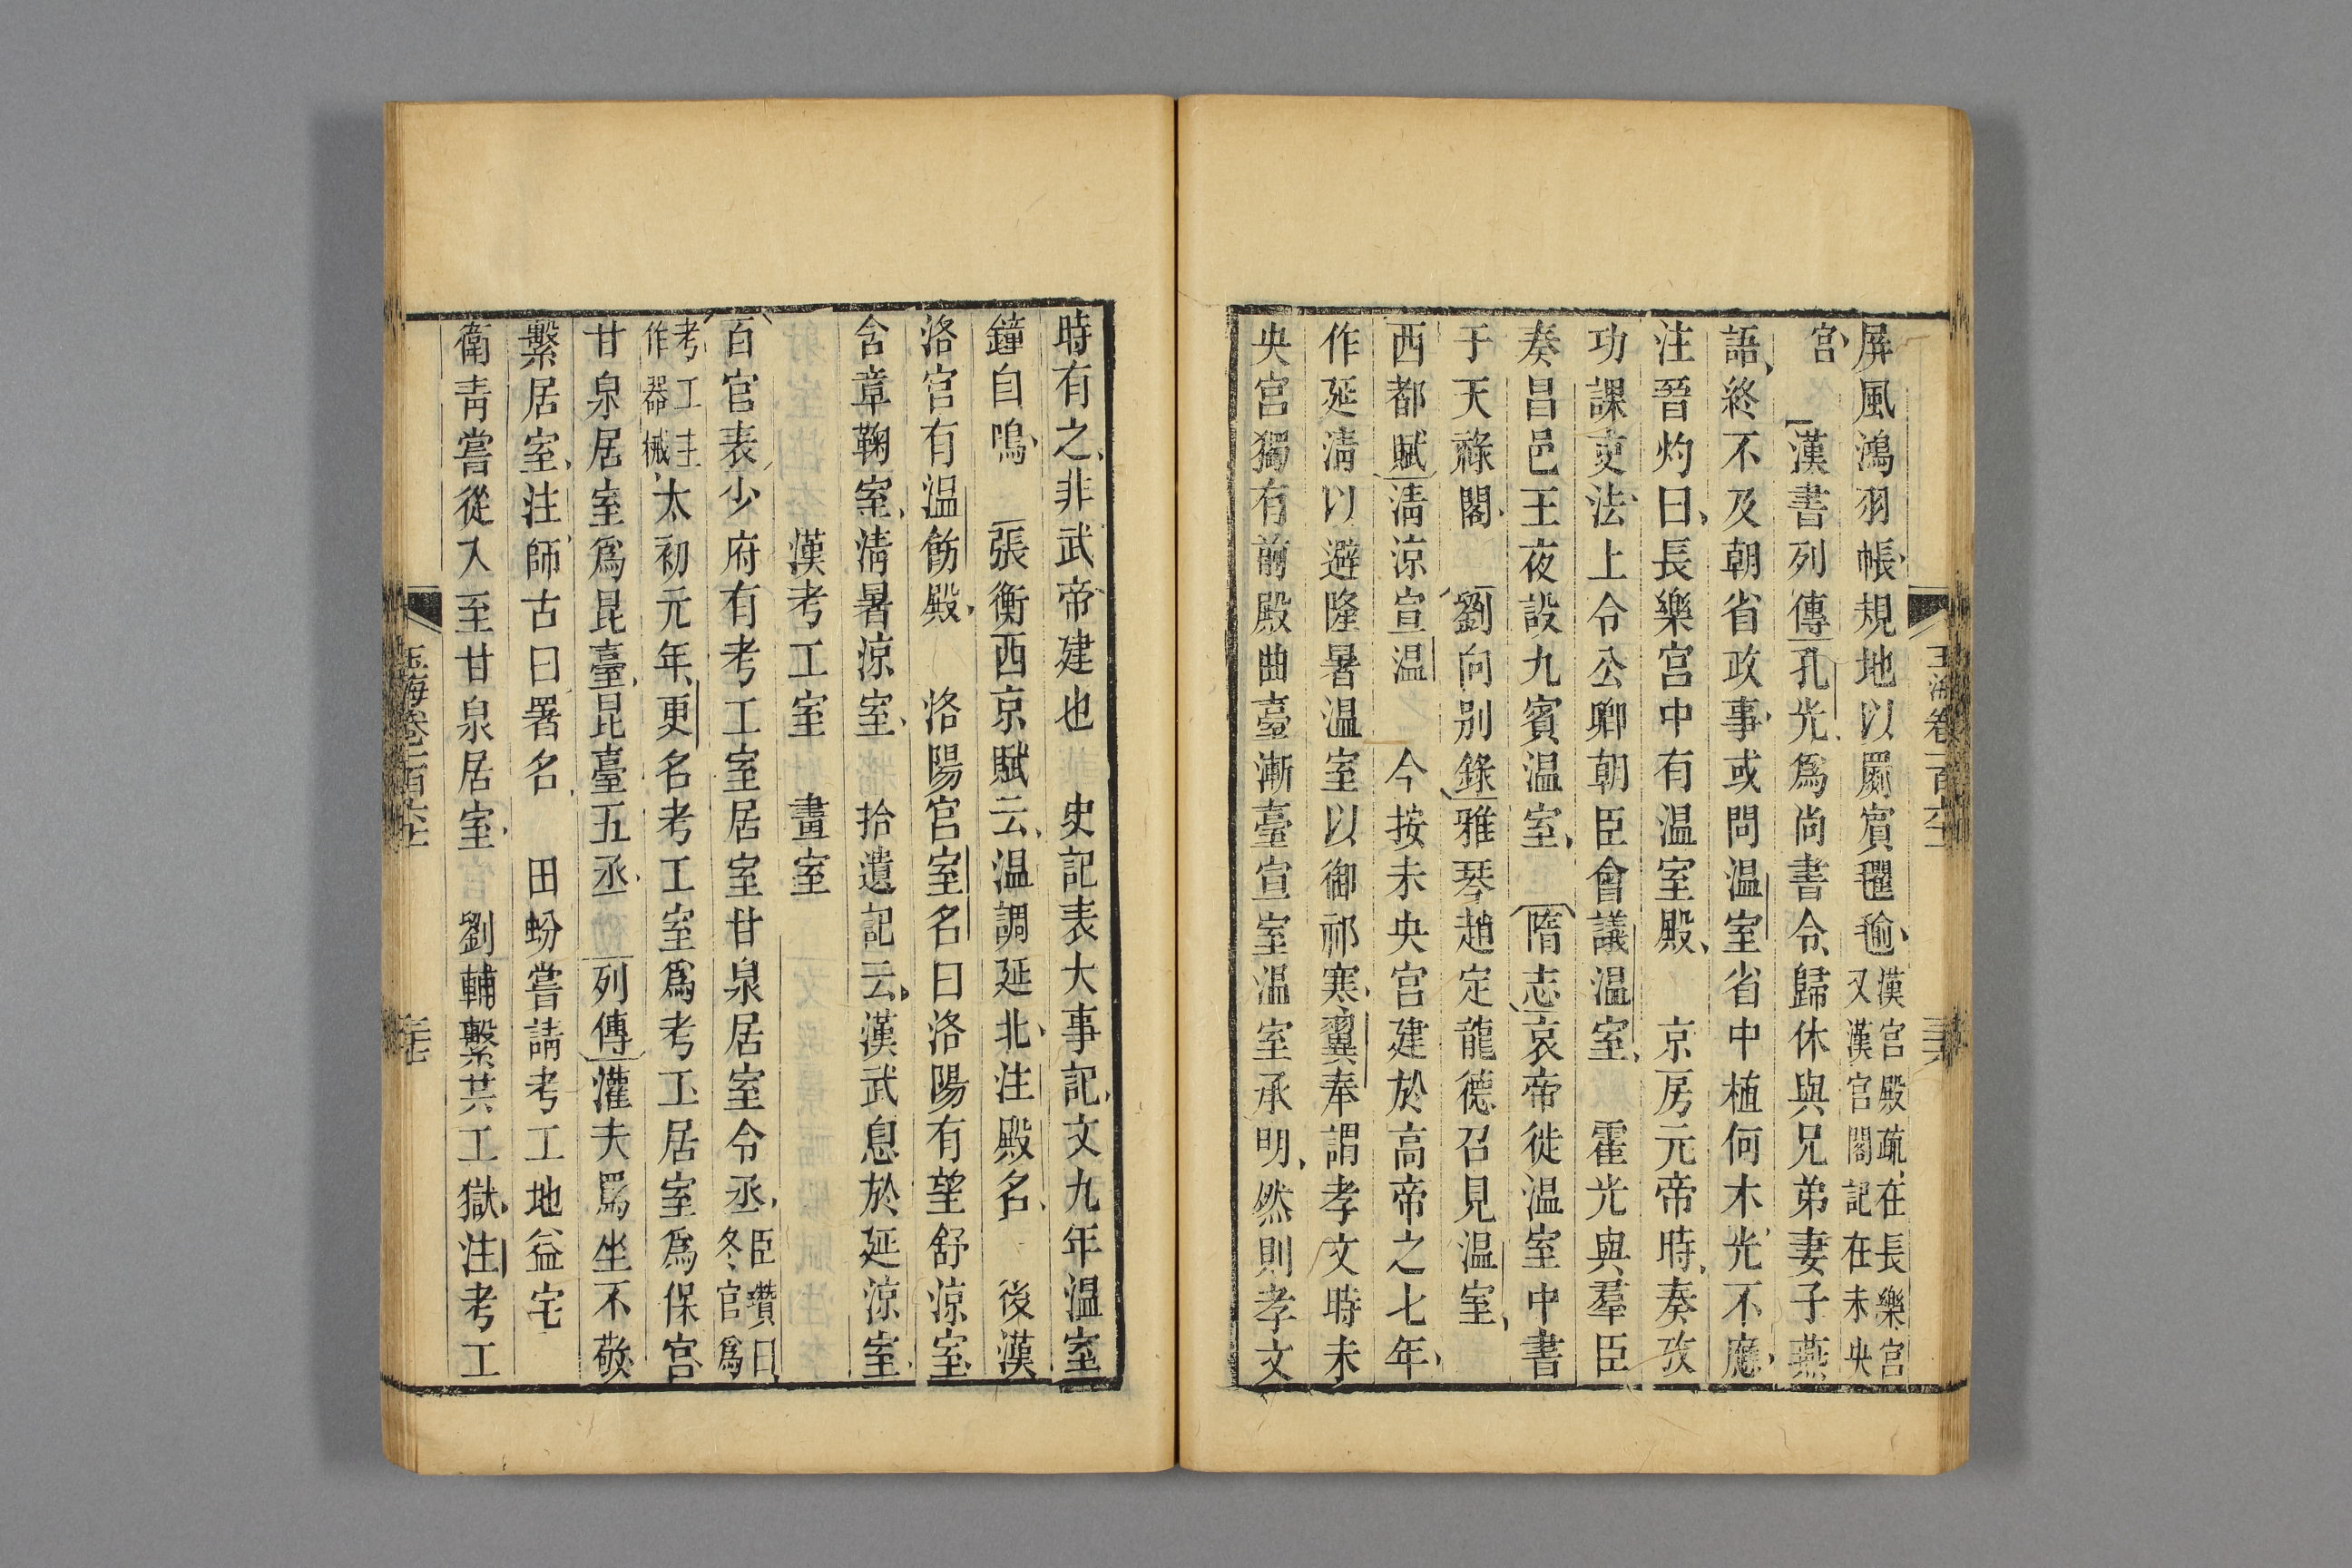 屏風鴻羽帳規地以罽賓氍毹漢宫殿疏在長樂宫又漢宫閣記在未央
宫　漢書列傳孔光爲尚書令歸休與兄弟妻子燕
語終不及朝省政事或問温室省中植何木光不應
注晉灼曰長樂宫中有温室殿　京房元帝時奏攷
功課吏法上令公卿朝臣會議温室　霍光與羣臣
奏昌邑王夜設九賓温室　隋志哀帝徙温室中書
于天祿閣　劉向别錄雅琴趙定龍德召見温室
西都賦清涼宣温　今按未央宫建於高帝之七年
作延清以避隆暑温室以御祁寒翼奉謂孝文時未
央宫獨有前殿曲臺漸臺宣室温室承明然則孝文
時有之非武帝建也　史記表大事記文九年温室
鐘自鳴　張衡西京賦云温調延北注殿名　後漢
洛宫有温飭殿　洛陽宫室名曰洛陽有望舒涼室
含章鞠室清暑涼室　拾遺記云漢武息於延涼室
漢考工室　畫室
百官表少府有考工室居室甘泉居室令丞臣瓚曰冬官爲
考工主作器械太初元年更名考工室爲考工居室爲保宫
甘泉居室爲昆臺昆臺五丞　列傳灌夫罵坐不敬
繫居室注師古曰署名　田蚡嘗請考工地益宅
衛青嘗從入至甘泉居室　劉輔繫共工獄注考工
玉海卷一百六十一